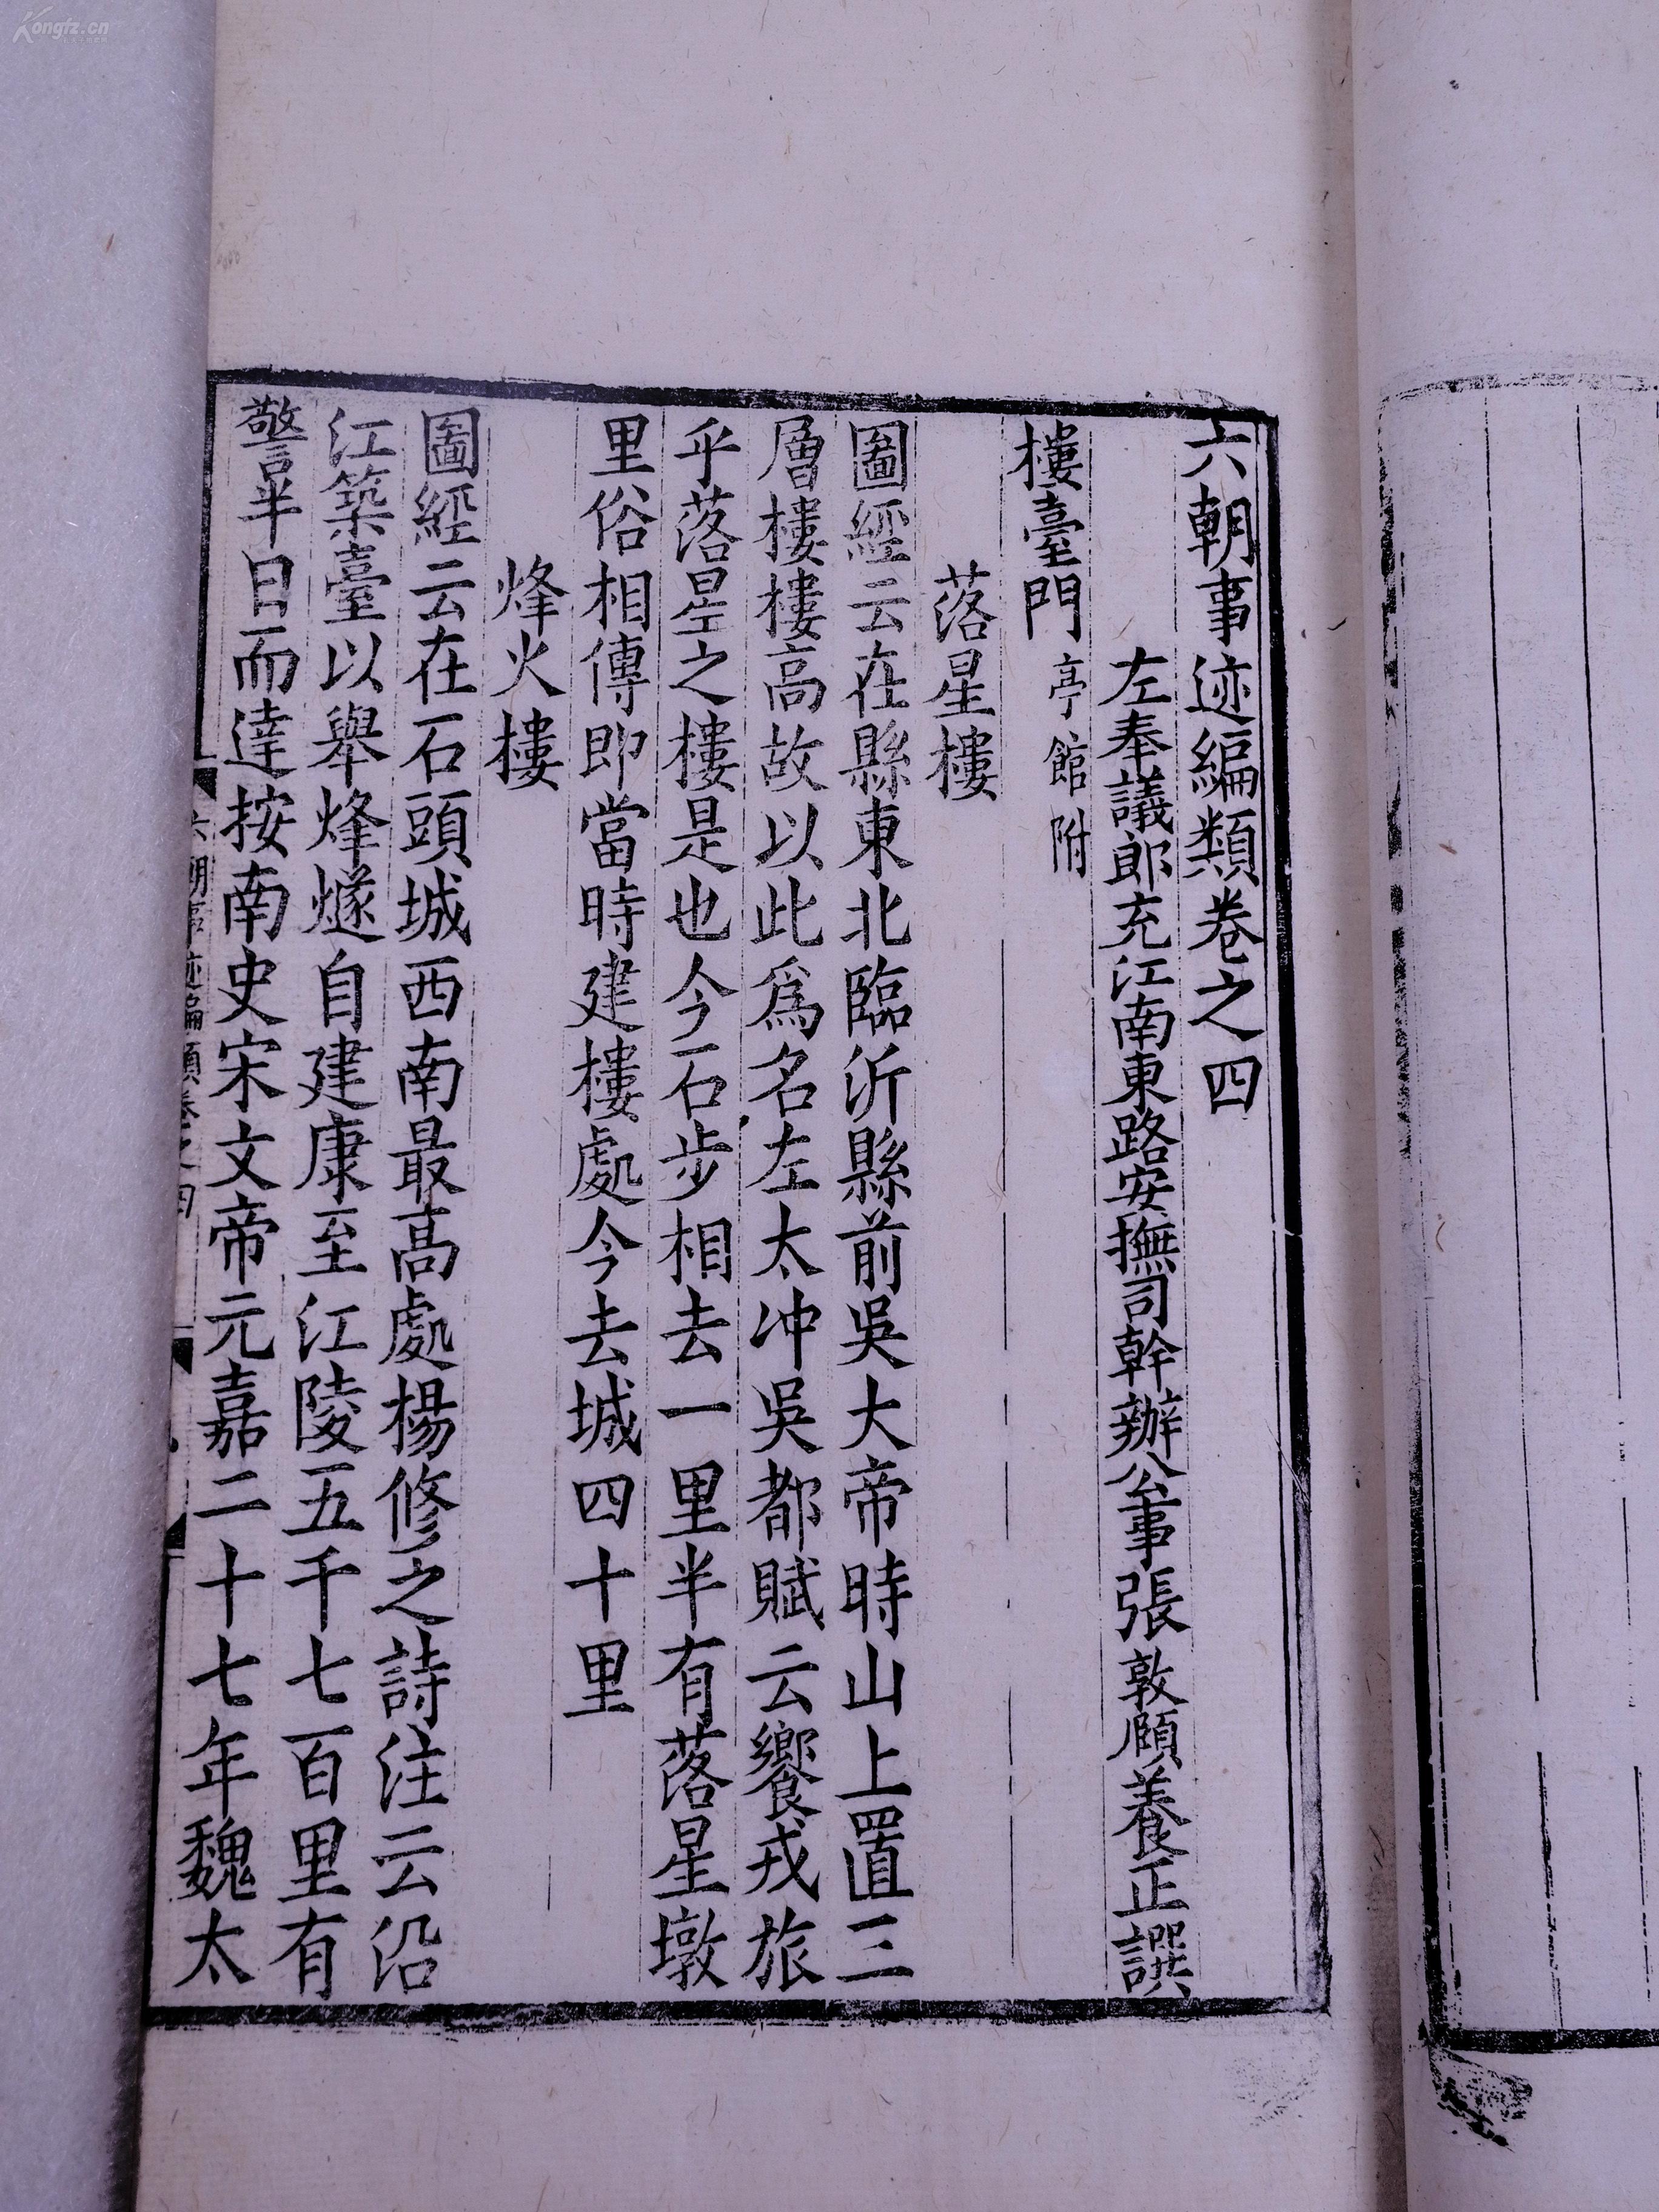 六朝事迹編類卷之四
左奉議郎充江南東路安撫司幹辦公事張敦頤養正譔
樓臺門 亭館附
落星樓
圖經云在縣東北臨沂縣前吳大帝時山上置三
層樓樓高故以此爲名左太沖吳都賦云饗戎旅
乎落星之樓是也今石步相去一里半有落星墩
里俗相傳即當時建樓處今去城四十里
烽火樓
圖經云在石頭城西南最高處楊修之詩注云沿
江築臺以舉烽燧自建康至江陵五千七百里有
警半日而達按南史宋文帝元嘉二十七年魏太
六朝事迹編類卷之四
Kongfz.cn